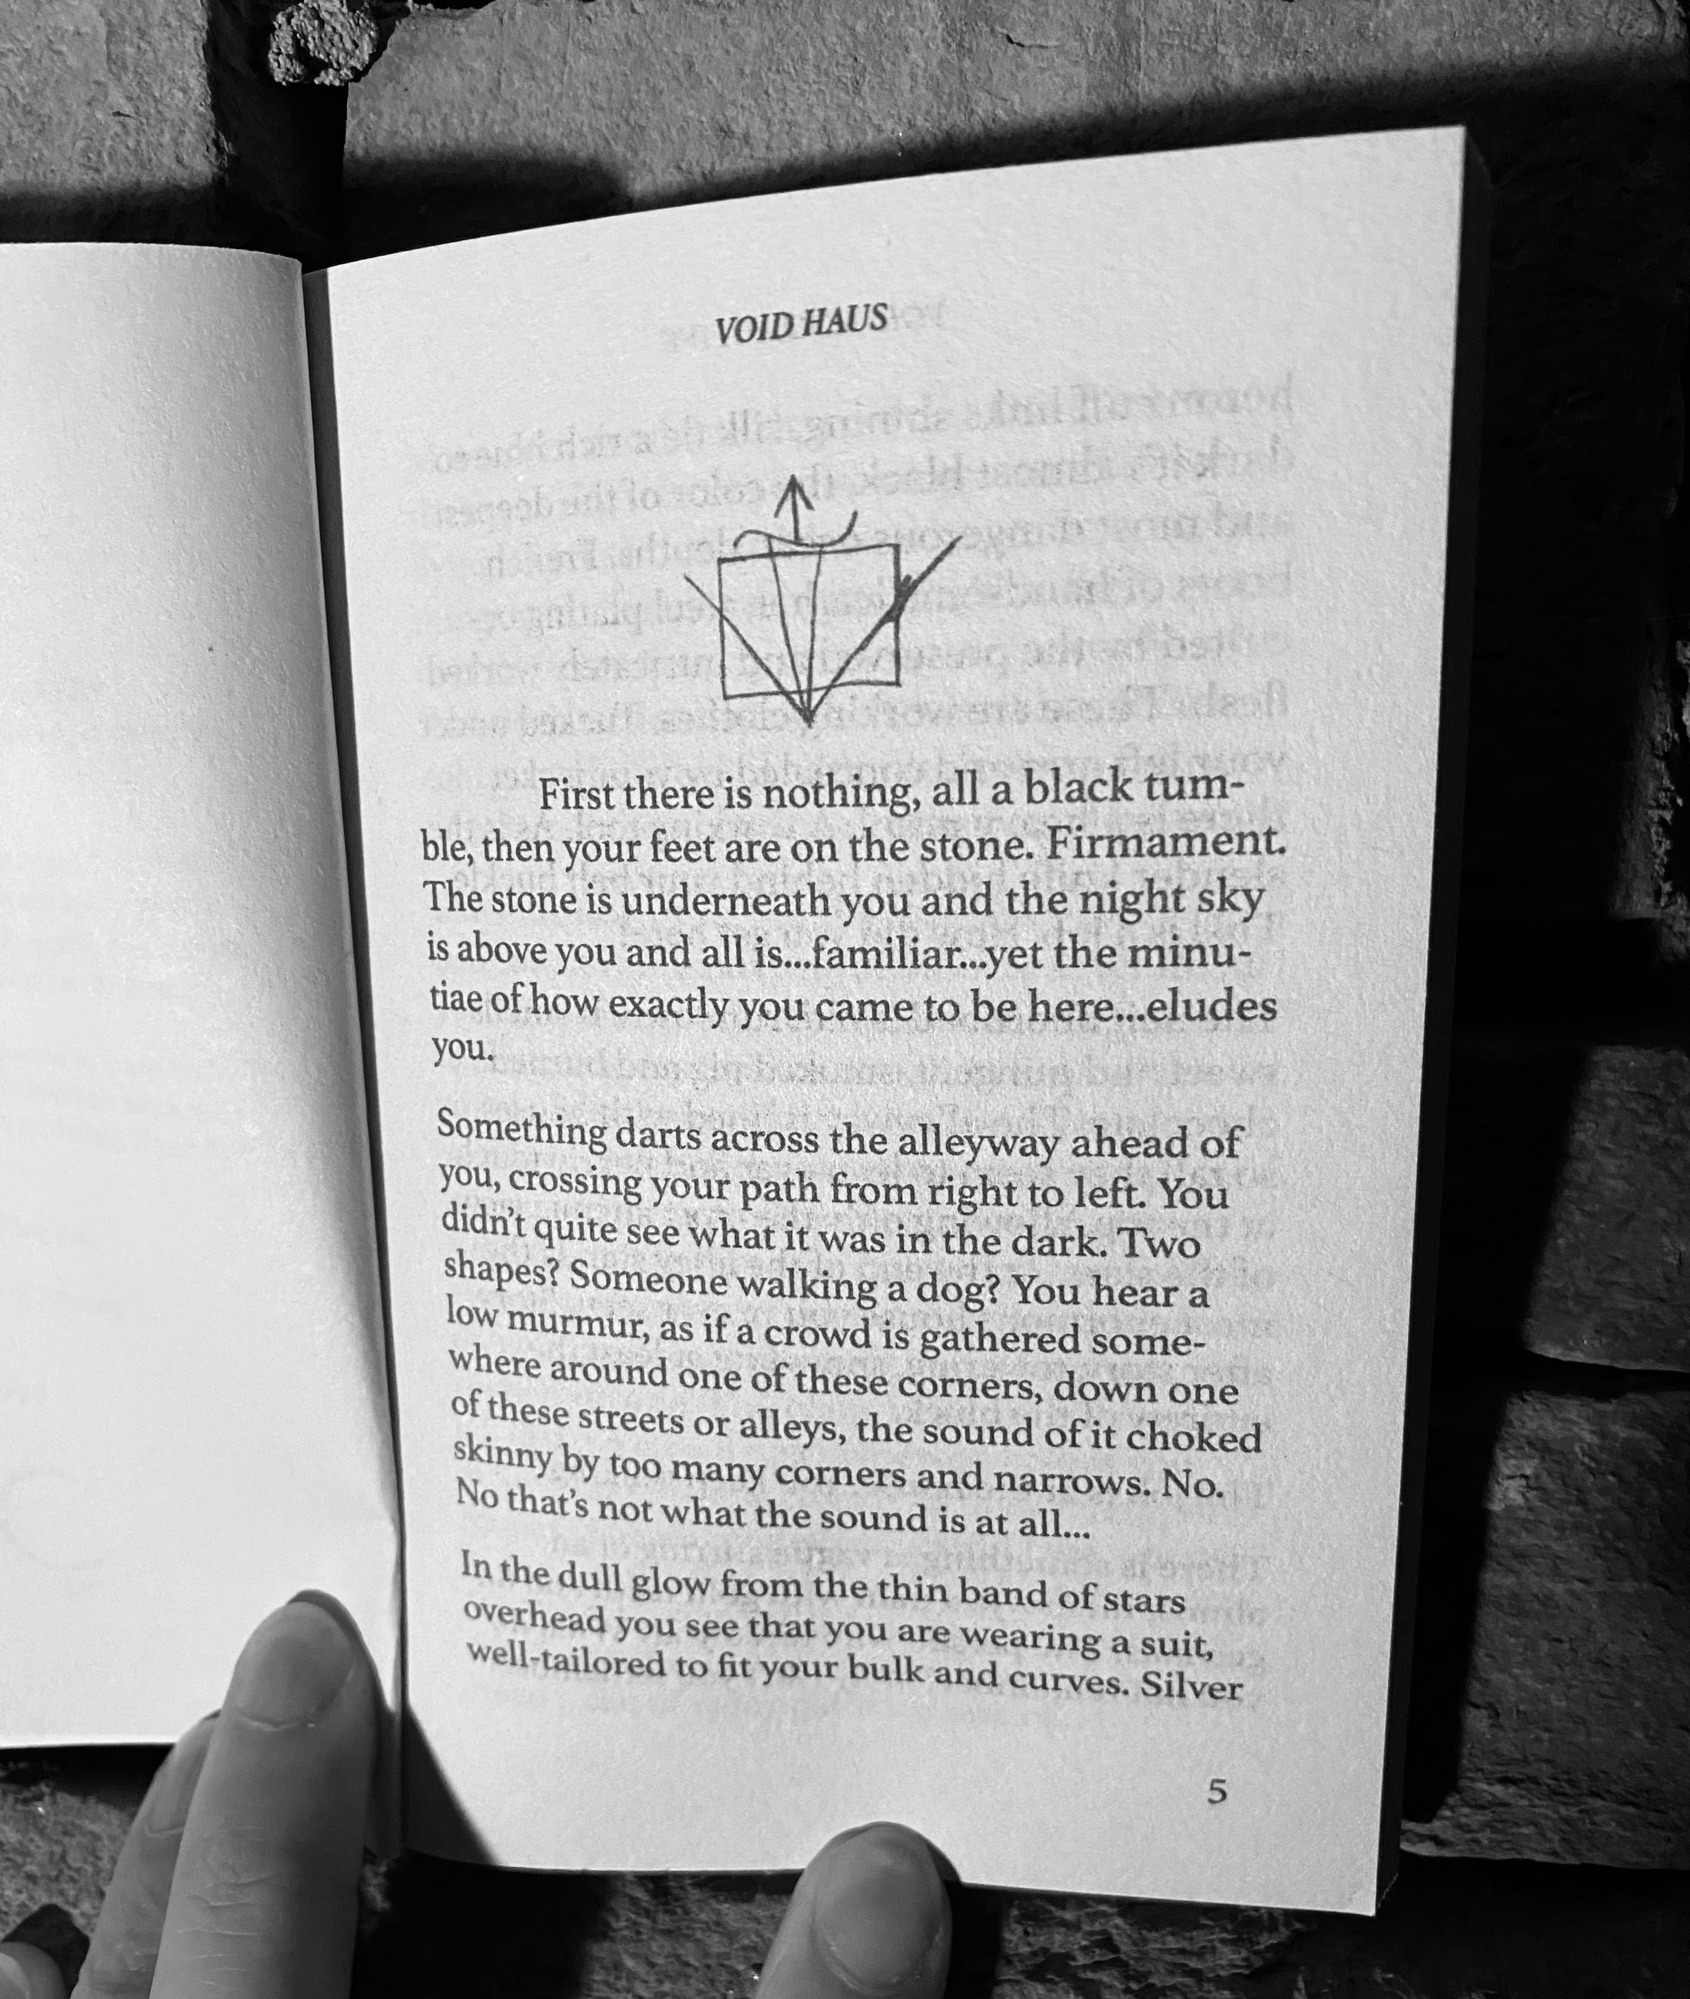 VOID HAUS
First there is nothing, all a black tum-
ble, then your feet are on the stone. Firmament.
The stone is underneath you and the night sky
is above you and all is...familiar...yet the minu-
tiae of how exactly you came to be here...eludes
you.
Something darts across the alleyway ahead of
you, crossing your path from right to left. You
didn't quite see what it was in the dark. Two
shapes? Someone walking a dog? You hear a
low murmur, as if a crowd is gathered some-
where around one of these corners, down one
of these streets or alleys, the sound of it choked
skinny by too many corners and narrows. No.
No that's not what the sound is at all...
In the dull glow from the thin band of stars
overhead you see that you are wearing a suit,
well-tailored to fit your bulk and curves. Silver
5